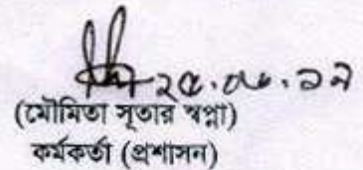 ২৫.০৬.১৯
(মৌমিতা সূতার স্বপ্না)
কর্মকর্তা (প্রশাসন)